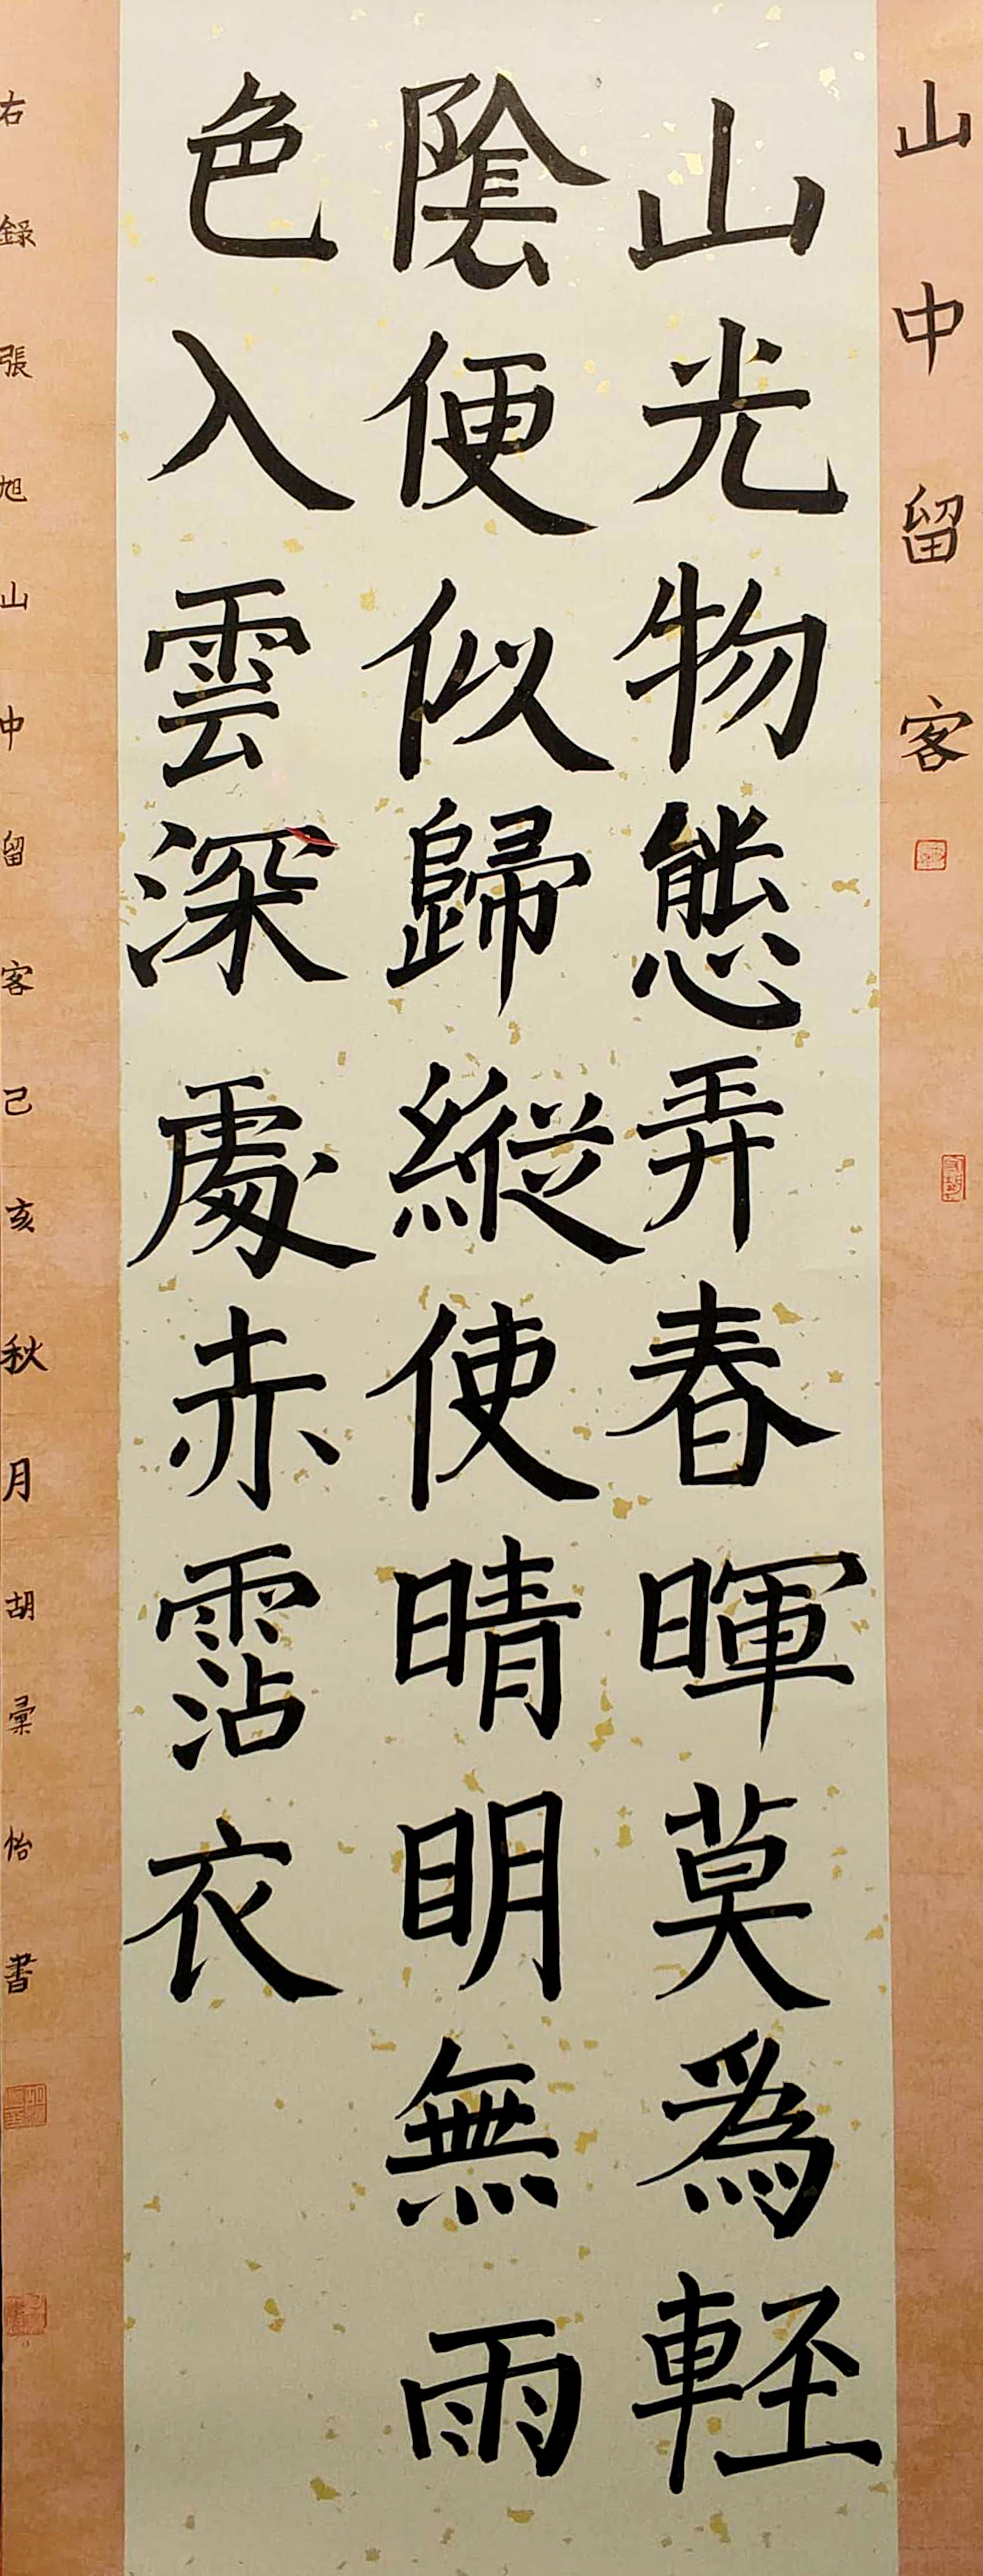 山中留客
山光物態弄春暉莫為輕
陰便似歸縱使晴明無雨
色入雲深處赤霑衣
右錄張旭山中留客己亥秋月胡彙怡書